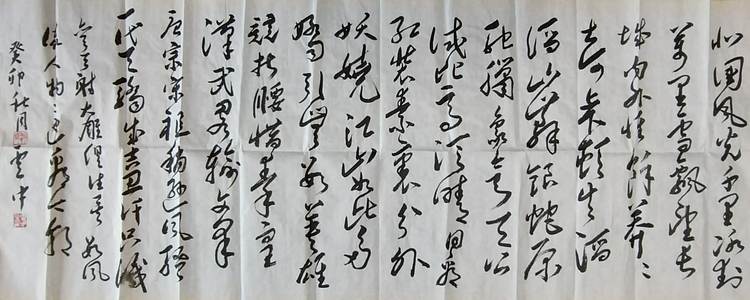 北国风光千里冰封
万里雪飘望长
城内外惟馀莽ミ
大河上下顿失滔
滔山舞银蛇原
驰蜡象欲与天公
试比高须晴日看
红装素裹分外
妖娆江山如此多
娇引无数英雄
竞折腰惜秦皇
汉武略输文采
唐宗宋祖稍逊风骚
一代天骄成吉思汗只识
弯弓射大雕俱往矣数风
流人物还看今朝
癸卯秋月 云中